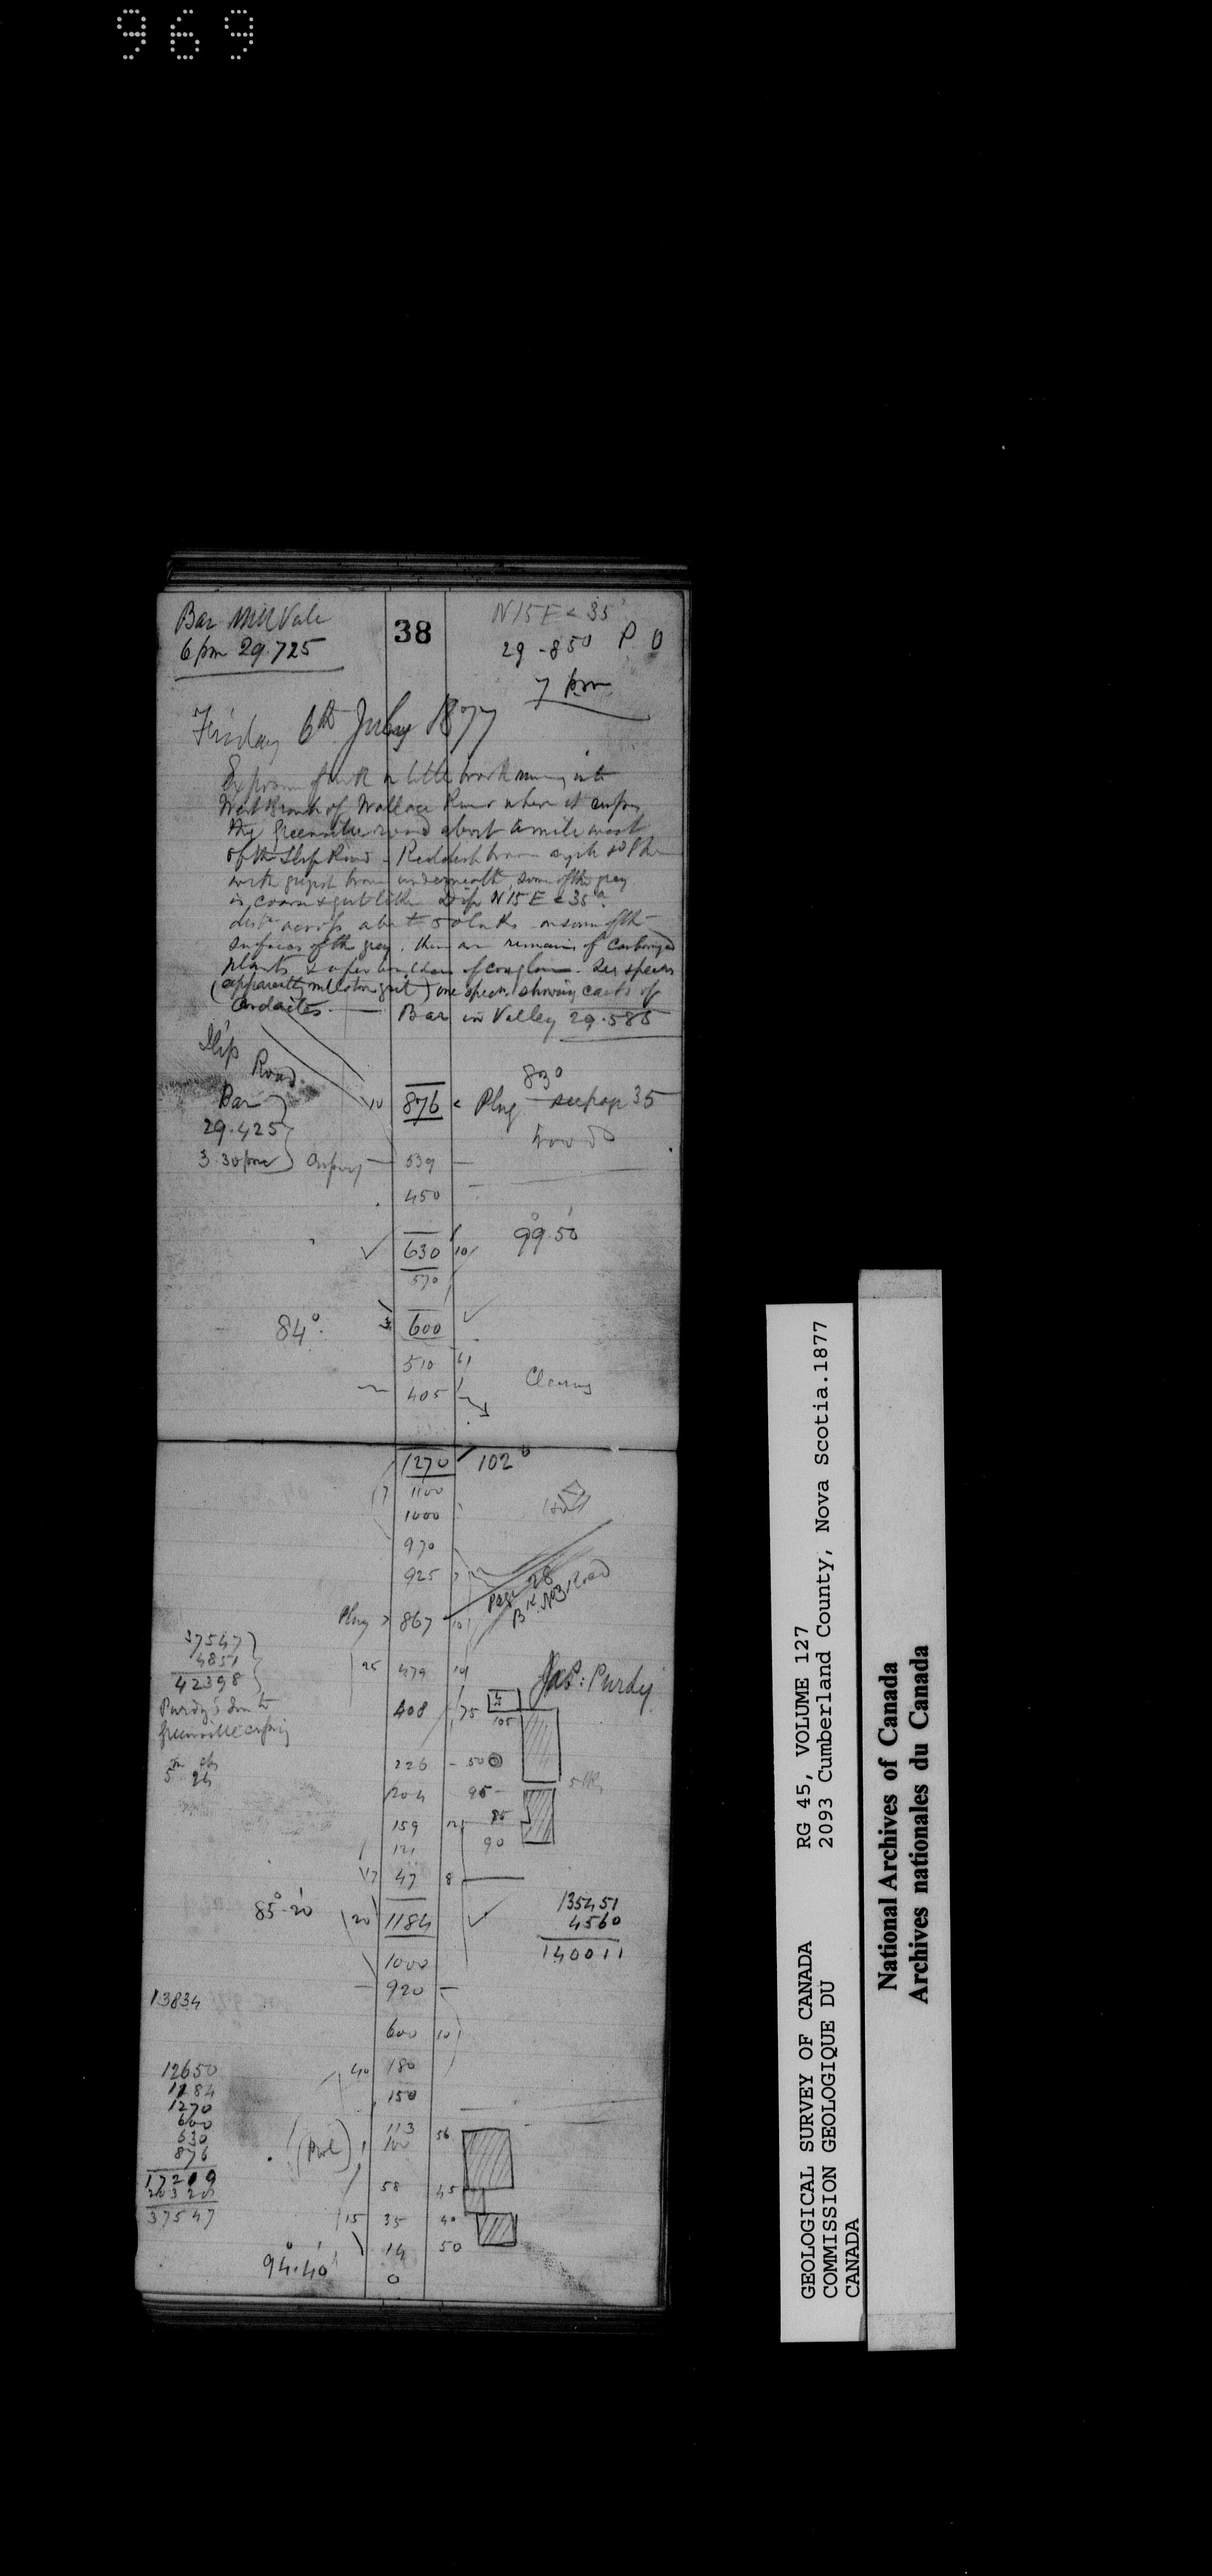 969
Bar Mill Vale
6 pm 29.725
38
N 15 E < 35°
29-850 P.O
7 pm
Friday 6th July 1877
Exposure of rock in little brook running into
West Branch of Wallace River where it crosses
the Greenville road about a mile west
of the Slip Road - Reddish brown
with greyish brown underneath, some of the grey
is coarse & gritlike Dip N 15 E < 35°
dist across about 50 links on some of the
surfaces of the grey, there are remains of carbonized
plants & a few boulders of conglom. See specim
(apparently millstone grit) one specn. showing casts of
Cordaites. — Bar in Valley 29.585
Slip Road
Bar
29.425
3.30 pm
10 876 < Plug see page 35
83°
539
450
630 10
99°.50'
570
84°. 600
510
405
Clearing
1270 102°
1100
1000
970
925
Page 28
Bk. No 3 Road
Plug > 867
37547
4851
42398
25 479 10
Jas: Purdy
408 75
105
Purdy's Sm to
Greenville crossing
226 - 50
5 lks
204 95
159 12 85
121 90
17 47 8
85°.20' 20 1184
135451
4560
140011
1000
920
13834
600 10
40 180
150
12650
1184
1270
600
630
876
17209
20320
37547
113 56
100
58 45
15 35 40
14 50
94°.40'
0
GEOLOGICAL SURVEY OF CANADA RG 45, VOLUME 127
COMMISSION GEOLOGIQUE DU 2093 Cumberland County, Nova Scotia.1877
CANADA
National Archives of Canada
Archives nationales du Canada